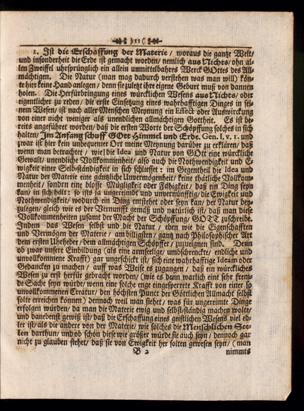 )( 11 )(
1. Ist die Erschaffung der Materie / woraus die gantze Welt/
und insonderheit die Erde ist gemacht worden/ nemlich aus Nichts/ ohn al-
len Zweiffel uhrsprünglich ein allein unmittelbahres Werck GOttes des All-
mächtigen. Die Natur (man mag dadurch verstehen was man will) kön-
te hier keine Hand anlegen / denn sie muste ihre eigene Geburt von dannen
holen. Die Herfürbringung eines würcklichen Wesens aus Nichts/ oder
eigentlicher zu reden / die erste Einsetzung eines wahrhafftigen Dinges in sei-
nem Wesen/ ist nach aller Menschen Meynung ein Effect oder Auswürckung
von nichts weniger als einer unendlichen allmächtigen Gottheit. Es ist be-
reits angeführet worden/ daß die ersten Worte der Schöpffung solches in sich
halten/ Im Anfang schuff GOtt Himmel und Erde. Gen. I. v. 1. und
zwar ist hier kein unbequemer Ort meine Meynung darüber zu erklären/ daß
wenn man betrachtet / wie die Idea und Natur von GOtt eine würckliche
Gewalt/ unendliche Vollkommenheit/ also auch die Nothwendigkeit und E-
wigkeit einer Selbständigkeit in sich schliesset : im Gegentheil die Idea und
Natur der Materie eine gäntzliche Unvermögenheit / keine thätliche Vollkom-
menheit/ sondern eine blosse Müßigkeit oder Fähigkeit/ daß
kan/ in sich hält: so ists ja unvernünfftig/ die Ewigkeit und
Nothwendigkeit/ wodurch ein Ding entstehet oder seyn kan/ der Natur bey-
zulegen/ gleich wie es der Vernunfft gemäß und natürlich ist/ daß man diese
Vollkommenheiten zusamt der Macht der Schöpffung/ GOTT zuschreibe.
Indem das Wesen selbst und die Natur / dem wie die Eigenschafften
und Vermögen der Materie / gantz nach Philosophischer Art
dem ersten Urheber/ dem allmächtigen Schöpffer/ zuzueignen sind. Denn
ob zwar unsere Einbildung (als eine armselige / umschrenckte/ endliche und
unvollkommene Krafft) gar ungeschickt ist/ sich eine wahrhafftige Ideam oder
Gedancken zu machen / auff was Weise es zugangen / daß ein würckliches
Wesen zu erst herfür gebracht worden / (wie es dann warlich eine sehr fremde
Sache seyn würde/ wenn eine solche enge eingesperrte Krafft von einer so
unvollkommenen Creatur / den höchsten Punct der Göttlichen Allmacht selbst
solte erreichen können) dennoch weil man siehet / was für ungereimte Dinge
erfolgen würden/ da man die Materie ewig und selbstständig machen wolte/
und daneben gewiß ist/ daß die Erschaffung eines geistlichen Wesens viel ed-
ler ist/ als die andere von der Materie/ wie solches die Menschlichen See-
len darthun/ und ob schon diese wie grösser würde sie auch seyn / dennoch gar
nicht zu glauben stehet/ daß sie von Ewigkeit her solten gewesen seyn/ (man
B 2 nimmts